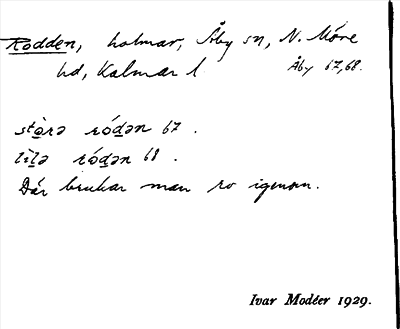 Rodden, holmar, Åby sn, N. Möre
hd, Kalmar l Åby 67,68.
stòrə ródən 67.
lìlə ródən 68.
Där brukar man ro igenom.
Ivar Modéer 1929.